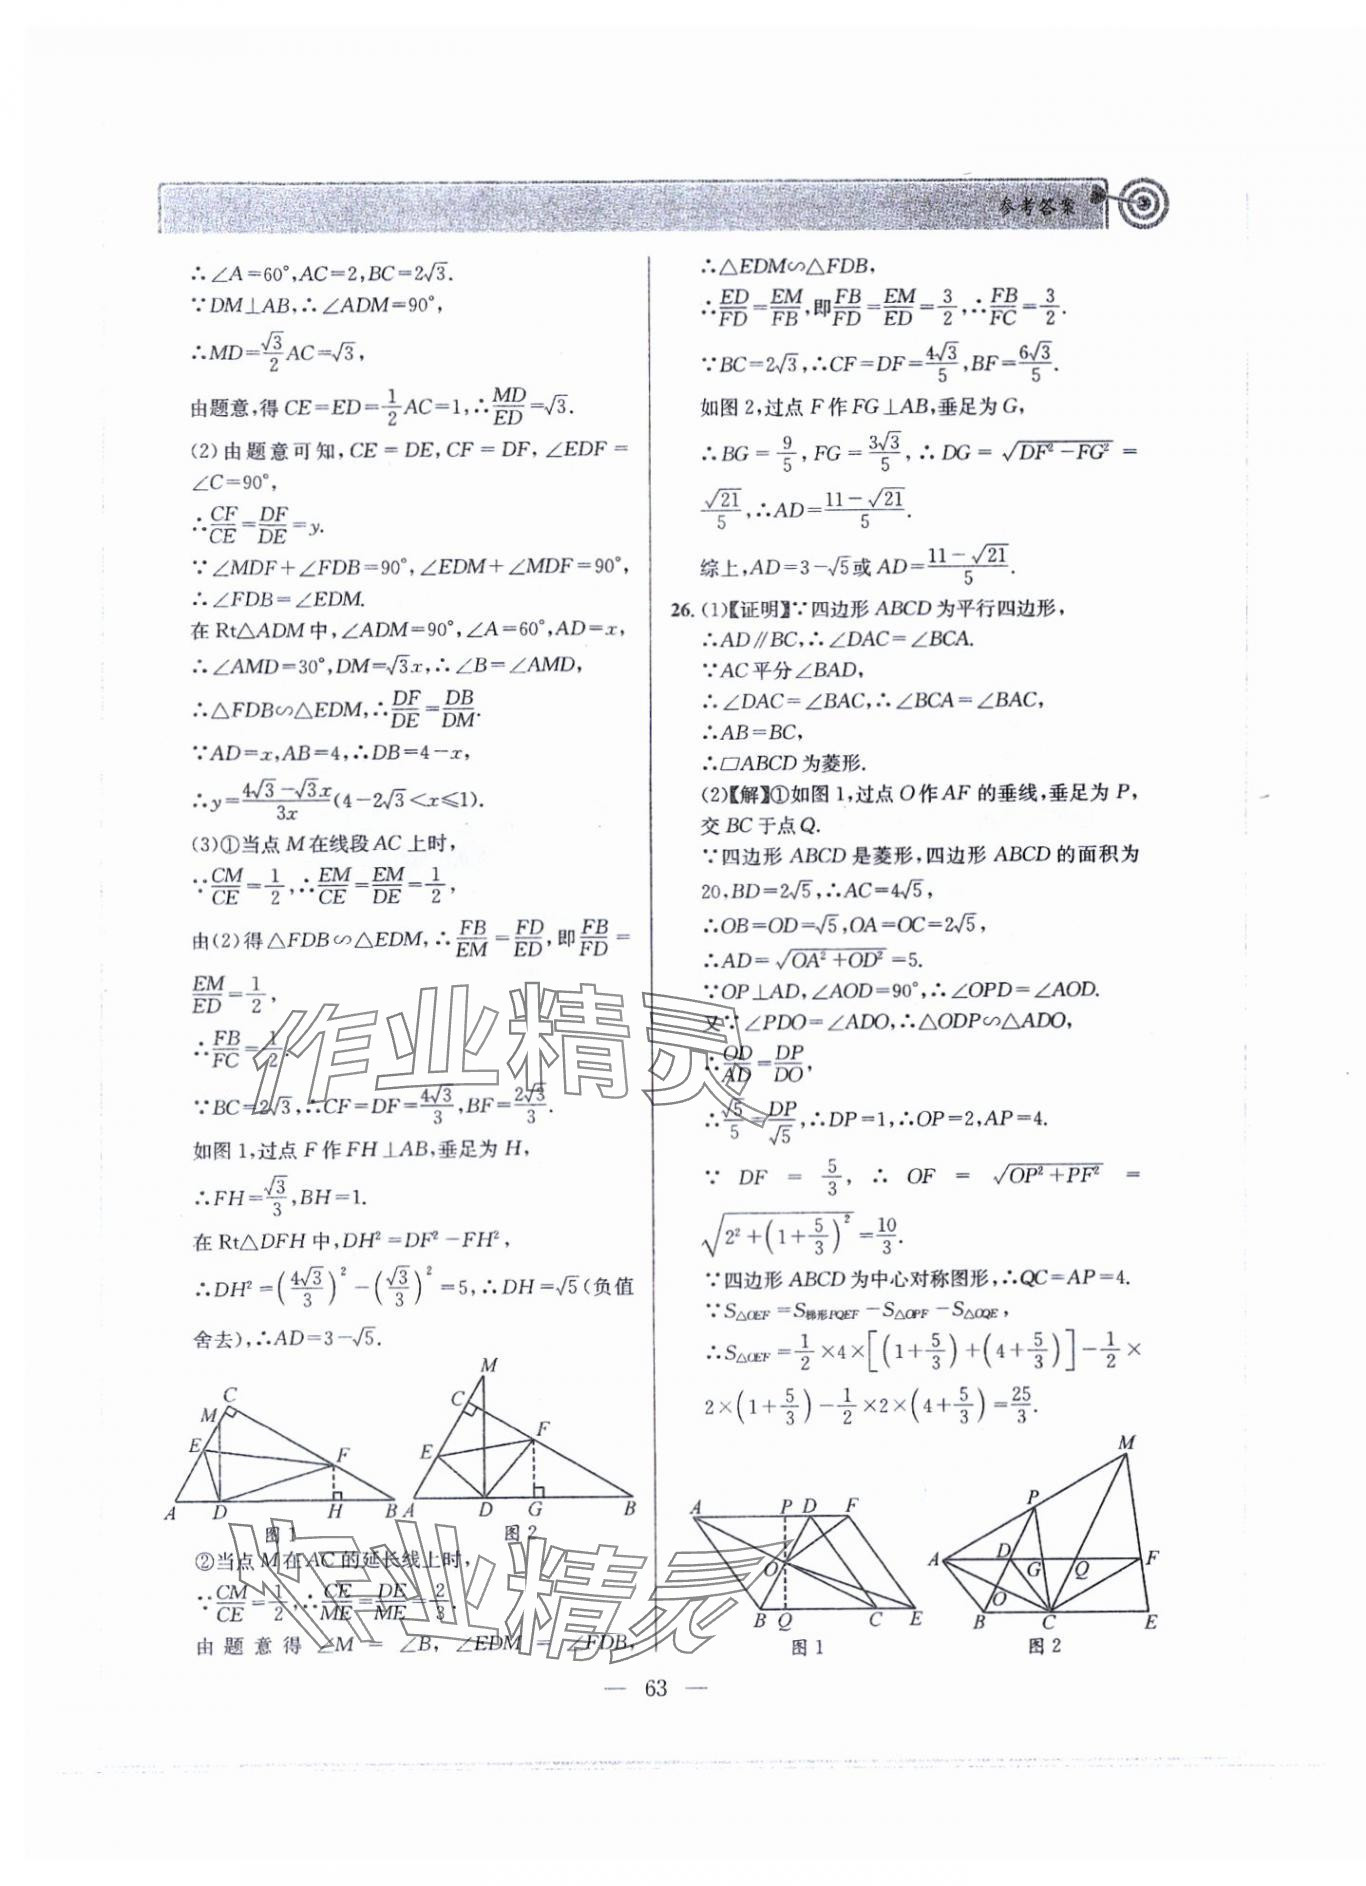 参考答案
∴∠A=60°,AC=2,BC=2√3.
∵DM⊥AB,∴∠ADM=90°,
∴MD=√3/2 AC=√3,
由题意,得CE=ED=1/2 AC=1,∴MD/ED=√3.
(2)由题意可知,CE=DE,CF=DF,∠EDF=
∠C=90°,
∴CF/CE=DF/DE=y.
∵∠MDF+∠FDB=90°,∠EDM+∠MDF=90°,
∴∠FDB=∠EDM.
在Rt△ADM中,∠ADM=90°,∠A=60°,AD=x,
∴∠AMD=30°,DM=√3x,∴∠B=∠AMD,
∴△FDB∽△EDM,∴DF/DE=DB/DM.
∵AD=x,AB=4,∴DB=4-x,
∴y=(4√3-√3x)/3x(4-2√3<x≤1).
(3)①当点M在线段AC上时,
∵CM/CE=1/2,∴EM/CE=EM/DE=1/2,
由(2)得△FDB∽△EDM,∴FB/EM=FD/ED,即FB/FD=
EM/ED=1/2,
∴FB/FC=1/2.
∵BC=2√3,∴CF=DF=4√3/3,BF=2√3/3.
如图1,过点F作FH⊥AB,垂足为H,
∴FH=√3/3,BH=1.
在Rt△DFH中,DH²=DF²-FH²,
∴DH²=(4√3/3)²-(√3/3)²=5,∴DH=√5(负值
舍去),∴AD=3-√5.
A B C D E F H M
图1
A B C D E F G M
图2
②当点M在AC的延长线上时,
∵CM/CE=1/2,∴CE/ME=DE/ME=2/3.
由题意得∠M=∠B,∠EDM=∠FDB,
∴△EDM∽△FDB,
∴ED/FD=EM/FB,即FB/FD=EM/ED=3/2,∴FB/FC=3/2.
∵BC=2√3,∴CF=DF=4√3/5,BF=6√3/5.
如图2,过点F作FG⊥AB,垂足为G,
∴BG=9/5,FG=3√3/5,∴DG=√(DF²-FG²)=
√21/5,∴AD=(11-√21)/5.
综上,AD=3-√5或AD=(11-√21)/5.
26.(1)【证明】∵四边形ABCD为平行四边形,
∴AD∥BC,∴∠DAC=∠BCA.
∵AC平分∠BAD,
∴∠DAC=∠BAC,∴∠BCA=∠BAC,
∴AB=BC,
∴□ABCD为菱形.
(2)【解】①如图1,过点O作AF的垂线,垂足为P,
交BC于点Q.
∵四边形ABCD是菱形,四边形ABCD的面积为
20,BD=2√5,∴AC=4√5,
∴OB=OD=√5,OA=OC=2√5,
∴AD=√(OA²+OD²)=5.
∵OP⊥AD,∠AOD=90°,∴∠OPD=∠AOD.
又∵∠PDO=∠ADO,∴△ODP∽△ADO,
∴OD/AD=DP/DO,
∴√5/5=DP/√5,∴DP=1,∴OP=2,AP=4.
∵DF=5/3,∴OF=√(OP²+PF²)=
√(2²+(1+5/3)²)=10/3.
∵四边形ABCD为中心对称图形,∴QC=AP=4.
∵S△OEF=S梯形PQEF-S△OPF-S△OQE,
∴S△OEF=1/2×4×[(1+5/3)+(4+5/3)]-1/2×
2×(1+5/3)-1/2×2×(4+5/3)=25/3.
A P D F O B Q C E
图1
M P A D G Q F O B C E
图2
— 63 —
作业精灵
作业精灵